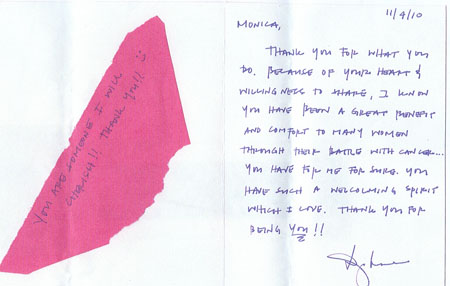 YOU ARE SOMEONE I WILL
CHERISH!! THANK YOU!!
11/4/10
MONICA,
THANK YOU FOR WHAT YOU
DO. BECAUSE OF YOUR HEART &
WILLINGNESS TO SHARE, I KNOW
YOU HAVE BEEN A GREAT BENEFIT
AND COMFORT TO MANY WOMEN
THROUGH THEIR BATTLE WITH CANCER...
YOU HAVE FOR ME FOR SURE. YOU
HAVE SUCH A WELCOMING SPIRIT
WHICH I LOVE. THANK YOU FOR
BEING YOU!!